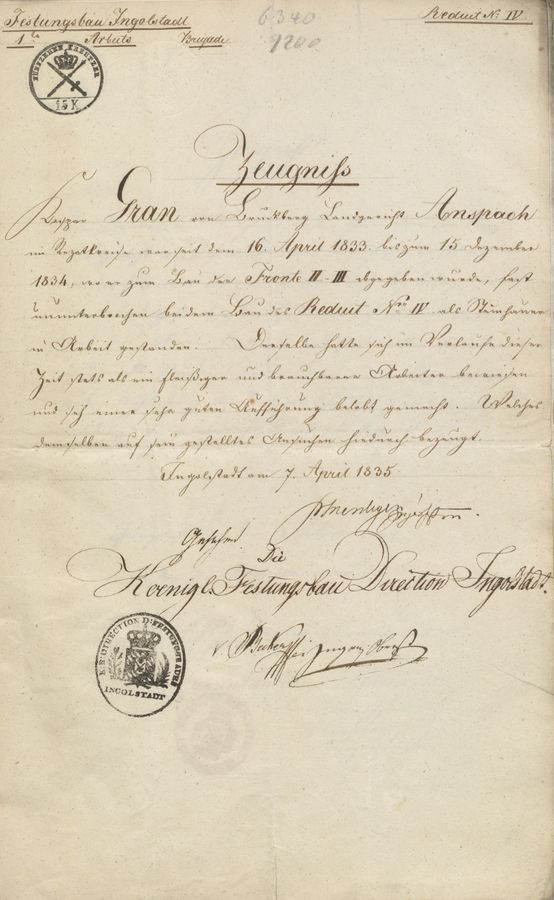 Festungsbau Ingolstadt
Reduit No. IV
1te Arbeits Brigade
6340
9200
FÜNFZEHEN KREUTZER
15 K
Zeugniß
Kaspar Gran von Bruckberg Landgerichts Anspach
im Rezatkreise, war seit dem 16. April 1833. bis zum 15 Dezember
1834, wo er zum Bau der Fronte II-III abgegeben wurde, fast
ununterbrochen bei dem Bau des Reduit Nro IV. als Steinhauer
in Arbeit gestanden. Derselbe hatte sich im Verlaufe dieser
Zeit stets als ein fleißiger und brauchbarer Arbeiter bewiesen
und sich einer sehr guten Aufführung belobt gemacht. Welches
demselben auf sein gestelltes Ansuchen hiedurch bezeugt.
Ingolstadt am 7. April 1835
Gesehen
Die
Koenigl. Festungsbau Direction Ingolstadt.
K. B. DIRECTION D. FESTUNGSBAUES
INGOLSTADT